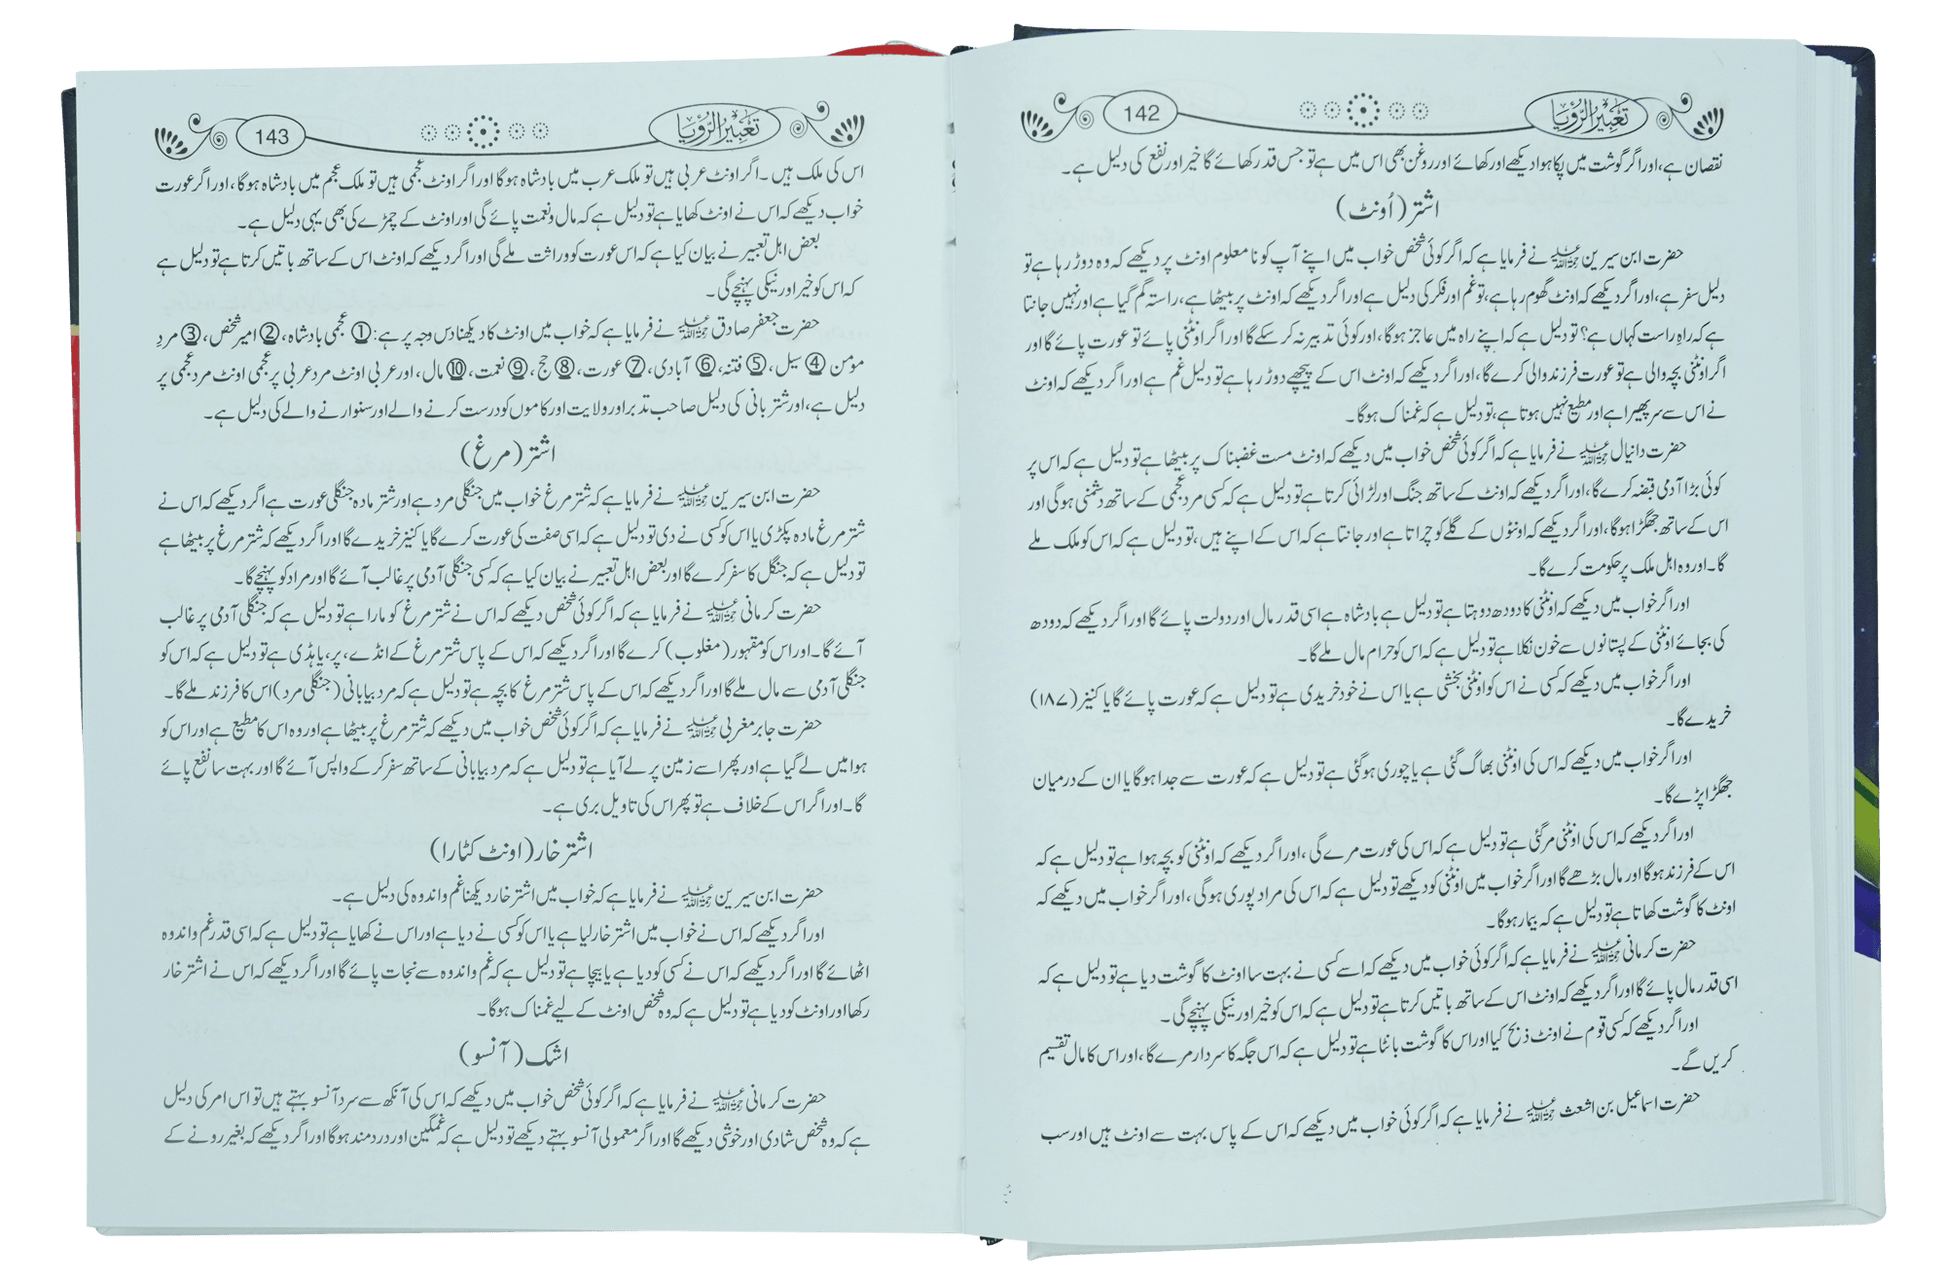 تعبیر الرؤیا
142
نقصان ہے، اور اگر گوشت میں پکا ہوا دیکھے اور کھائے اور روغن بھی اس میں ہے تو جس قدر کھائے گا خیر اور نفع کی دلیل ہے۔
اشتر (اُونٹ)
حضرت ابن سیرین رحمۃ اللہ علیہ نے فرمایا ہے کہ اگر کوئی شخص خواب میں اپنے آپ کو نامعلوم اونٹ پر دیکھے کہ وہ دوڑ رہا ہے تو
دلیل سفر ہے، اور اگر دیکھے کہ اونٹ گھوم رہا ہے، تو غم اور فکر کی دلیل ہے اور اگر دیکھے کہ اونٹ پر بیٹھا ہے، راستہ گم گیا ہے اور نہیں جانتا
ہے کہ راہِ راست کہاں ہے؟ تو دلیل ہے کہ اپنے راہ میں عاجز ہوگا، اور کوئی تدبیر نہ کر سکے گا اور اگر اونٹنی پائے تو عورت پائے گا اور
اگر اونٹنی بچہ والی ہے تو عورت فرزند والی کرے گا، اور اگر دیکھے کہ اونٹ اس کے پیچھے دوڑ رہا ہے تو دلیل غم ہے اور اگر دیکھے کہ اونٹ
نے اس سے سر پھیرا ہے اور مطیع نہیں ہوتا ہے، تو دلیل ہے کہ غمناک ہوگا۔
حضرت دانیال رحمۃ اللہ علیہ نے فرمایا ہے کہ اگر کوئی شخص خواب میں دیکھے کہ اونٹ مست غضبناک پر بیٹھا ہے تو دلیل ہے کہ اس پر
کوئی بڑا آدمی قبضہ کرے گا، اور اگر دیکھے کہ اونٹ کے ساتھ جنگ اور لڑائی کرتا ہے تو دلیل ہے کہ کسی مرد عجمی کے ساتھ دشمنی ہوگی اور
اس کے ساتھ جھگڑا ہوگا، اور اگر دیکھے کہ اونٹوں کے گلے کو چراتا ہے اور جانتا ہے کہ اس کے اپنے ہیں، تو دلیل ہے کہ اس کو ملک ملے
گا۔ اور وہ اہل ملک پر حکومت کرے گا۔
اور اگر خواب میں دیکھے کہ اونٹنی کا دودھ دوہتا ہے تو دلیل ہے بادشاہ سے اسی قدر مال اور دولت پائے گا اور اگر دیکھے کہ دودھ
کی بجائے اونٹنی کے پستانوں سے خون نکلا ہے تو دلیل ہے کہ اس کو حرام مال ملے گا۔
اور اگر خواب میں دیکھے کہ کسی نے اس کو اونٹنی بخشی ہے یا اس نے خود خریدی ہے تو دلیل ہے کہ عورت پائے گا یا کنیز (۱۸۷)
خریدے گا۔
اور اگر خواب میں دیکھے کہ اس کی اونٹنی بھاگ گئی ہے یا چوری ہوگئی ہے تو دلیل ہے کہ عورت سے جدا ہوگا یا ان کے درمیان
جھگڑا پڑے گا۔
اور اگر دیکھے کہ اس کی اونٹنی مر گئی ہے تو دلیل ہے کہ اس کی عورت مرے گی، اور اگر دیکھے کہ اونٹنی کو بچہ ہوا ہے تو دلیل ہے کہ
اس کے فرزند ہوگا اور مال بڑھے گا اور اگر خواب میں اونٹنی کو دیکھے تو دلیل ہے کہ اس کی مراد پوری ہوگی، اور اگر خواب میں دیکھے کہ
اونٹ کا گوشت کھاتا ہے تو دلیل ہے کہ بیمار ہوگا۔
حضرت کرمانی رحمۃ اللہ علیہ نے فرمایا ہے کہ اگر کوئی خواب میں دیکھے کہ اسے کسی نے بہت سا اونٹ کا گوشت دیا ہے تو دلیل ہے کہ
اسی قدر مال پائے گا اور اگر دیکھے کہ اونٹ اس کے ساتھ باتیں کرتا ہے تو دلیل ہے کہ اس کو خیر اور نیکی پہنچے گی۔
اور اگر دیکھے کہ کسی قوم نے اونٹ ذبح کیا اور اس کا گوشت بانٹا ہے تو دلیل ہے کہ اس جگہ کا سردار مرے گا، اور اس کا مال تقسیم
کریں گے۔
حضرت اسماعیل بن اشعث رحمۃ اللہ علیہ نے فرمایا ہے کہ اگر کوئی خواب میں دیکھے کہ اس کے پاس بہت سے اونٹ ہیں اور سب
تعبیر الرؤیا
143
اس کی ملک ہیں۔ اگر اونٹ عربی ہیں تو ملک عرب میں بادشاہ ہوگا اور اگر اونٹ عجمی ہیں تو ملک عجم میں بادشاہ ہوگا، اور اگر عورت
خواب دیکھے کہ اس نے اونٹ کھایا ہے تو دلیل ہے کہ مال و نعمت پائے گی اور اونٹ کے چمڑے کی بھی یہی دلیل ہے۔
بعض اہل تعبیر نے بیان کیا ہے کہ اس عورت کو وراثت ملے گی اور اگر دیکھے کہ اونٹ اس کے ساتھ باتیں کرتا ہے تو دلیل ہے
کہ اس کو خیر اور نیکی پہنچے گی۔
حضرت جعفر صادق رحمۃ اللہ علیہ نے فرمایا ہے کہ خواب میں اونٹ کا دیکھنا دس وجہ پر ہے: ① عجمی بادشاہ، ② امیر شخص، ③ مردِ
مؤمن ④ سیل، ⑤ فتنہ، ⑥ آبادی، ⑦ عورت، ⑧ حج، ⑨ نعمت، ⑩ مال، اور عربی اونٹ مرد عربی پر عجمی اونٹ مرد عجمی پر
دلیل ہے، اور شتر بانی کی دلیل صاحب تدبر اور ولایت اور کاموں کو درست کرنے والے اور سنوارنے والے کی دلیل ہے۔
اشتر (مرغ)
حضرت ابن سیرین رحمۃ اللہ علیہ نے فرمایا ہے کہ شتر مرغ خواب میں جنگلی مرد ہے اور شتر مادہ جنگلی عورت ہے اگر دیکھے کہ اس نے
شتر مرغ مادہ پکڑی یا اس کو کسی نے دی تو دلیل ہے کہ اسی صفت کی عورت کرے گا یا کنیز خریدے گا اور اگر دیکھے کہ شتر مرغ پر بیٹھا ہے
تو دلیل ہے کہ جنگل کا سفر کرے گا اور بعض اہل تعبیر نے بیان کیا ہے کہ کسی جنگلی آدمی پر غالب آئے گا اور مراد کو پہنچے گا۔
حضرت کرمانی رحمۃ اللہ علیہ نے فرمایا ہے کہ اگر کوئی شخص دیکھے کہ اس نے شتر مرغ کو مارا ہے تو دلیل ہے کہ جنگلی آدمی پر غالب
آئے گا۔ اور اس کو مقہور (مغلوب) کرے گا اور اگر دیکھے کہ اس کے پاس شتر مرغ کے انڈے، پر، یا ہڈی ہے تو دلیل ہے کہ اس کو
جنگلی آدمی سے مال ملے گا اور اگر دیکھے کہ اس کے پاس شتر مرغ کا بچہ ہے تو دلیل ہے کہ مرد بیابانی (جنگلی مرد) اس کا فرزند ملے گا۔
حضرت جابر مغربی رحمۃ اللہ علیہ نے فرمایا ہے کہ اگر کوئی شخص خواب میں دیکھے کہ شتر مرغ پر بیٹھا ہے اور وہ اس کا مطیع ہے اور اس کو
ہوا میں لے گیا ہے اور پھر اسے زمین پر لے آیا ہے تو دلیل ہے کہ مرد بیابانی کے ساتھ سفر کر کے واپس آئے گا اور بہت سا نفع پائے
گا۔ اور اگر اس کے خلاف ہے تو پھر اس کی تاویل بری ہے۔
اشتر خار (اونٹ کٹارا)
حضرت ابن سیرین رحمۃ اللہ علیہ نے فرمایا ہے کہ خواب میں اشتر خار دیکھنا غم و اندوہ کی دلیل ہے۔
اور اگر دیکھے کہ اس نے خواب میں اشتر خار لیا ہے یا اس کو کسی نے دیا ہے اور اس نے کھایا ہے تو دلیل ہے کہ اسی قدر غم و اندوہ
اٹھائے گا اور اگر دیکھے کہ اس نے کسی کو دیا ہے یا بیچا ہے تو دلیل ہے کہ غم و اندوہ سے نجات پائے گا اور اگر دیکھے کہ اس نے اشتر خار
رکھا اور اونٹ کو دیا ہے تو دلیل ہے کہ وہ شخص اونٹ کے لیے غمناک ہوگا۔
اشک (آنسو)
حضرت کرمانی رحمۃ اللہ علیہ نے فرمایا ہے کہ اگر کوئی شخص خواب میں دیکھے کہ اس کی آنکھ سے سرد آنسو بہتے ہیں تو اس امر کی دلیل
ہے کہ وہ شخص شادی اور خوشی دیکھے گا اور اگر معمولی آنسو بہتے دیکھے تو دلیل ہے کہ غمگین اور دردمند ہوگا اور اگر دیکھے کہ بغیر رونے کے